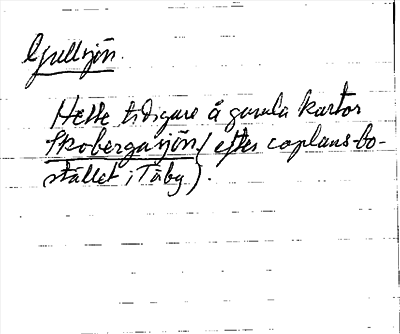 Gullsjön.
Hette tidigare å gamla kartor
Skobergasjön (efter caplans-bo-
stället i Täby).